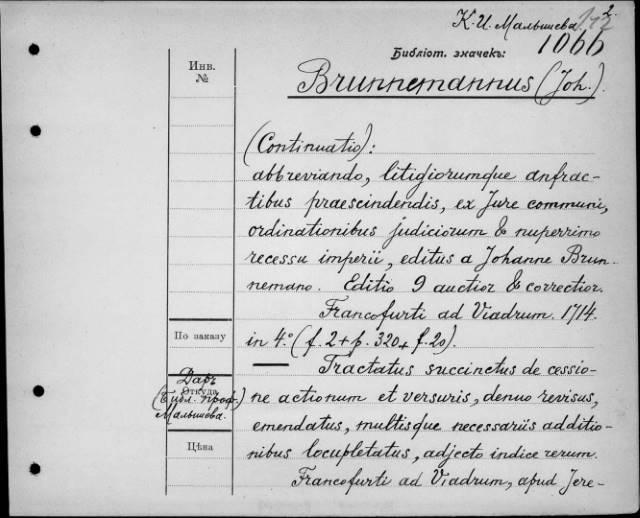 К. И. Малышева 2.
Библіот. значекъ: 1066
Инв.
№
Brunnemannus (Joh.).
(Continuatio):
abbreviando, litigiorumque anfrac-
tibus praescindendis, ex Jure communi,
ordinationibus judiciorum & nuperrimo
recessu imperii, editus a Johanne Brun-
nemano. Editio 9 auctior & correctior.
Francofurti ad Viadrum. 1714.
По заказу
in 4.º (f. 2 + p. 320 + f. 20).
Tractatus succinctus de cessio-
Даръ
Откуда
(Библ. проф.
Малышева.)
ne actionum et versuris, denuo revisus,
emendatus, multisque necessariis additio-
Цѣна
nibus locupletatus, adjecto indice rerum.
Francofurti ad Viadrum, apud Jere-